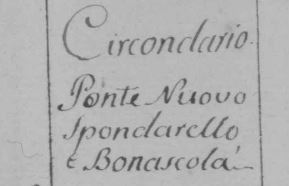 Circondario.
Ponte Nuovo
Spondarello
e Bonascola